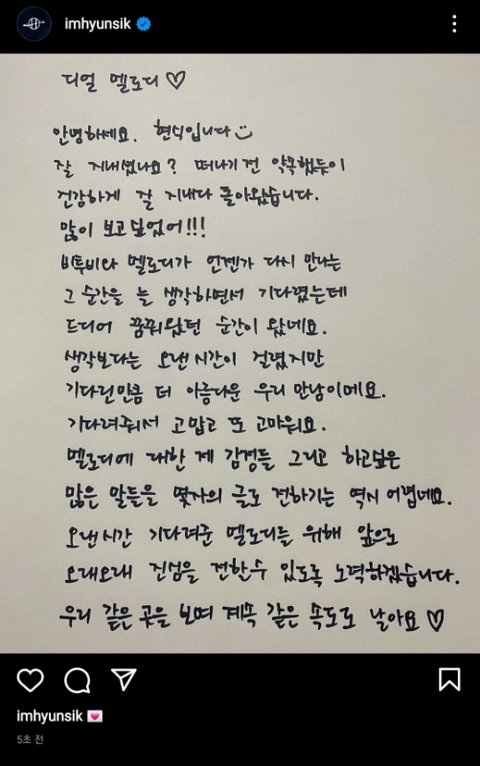 imhyunsik
디얼 멜로디♡
안녕하세요. 현식입니다
잘 지내셨나요? 떠나기 전 약속했듯이
건강하게 잘 지내다 돌아왔습니다.
많이 보고싶었어!!!
비투비와 멜로디가 언젠가 다시 만나는
그 순간을 늘 생각하면서 기다렸는데
드디어 꿈꿔왔던 순간이 왔네요.
생각보다는 오랜시간이 걸렸지만
기다린만큼 더 아름다운 우리 만남이예요.
기다려줘서 고맙고 또 고마워요.
멜로디에 대한 제 감정들 그리고 하고싶은
많은 말들을 몇자의 글로 전하기는 역시 어렵네요.
오랜시간 기다려준 멜로디들 위해 앞으로
오래오래 진심을 전할수 있도록 노력하겠습니다.
우리 같은 곳을 보며 계속 같은 속도로 날아요♡
imhyunsik 💌
5초 전